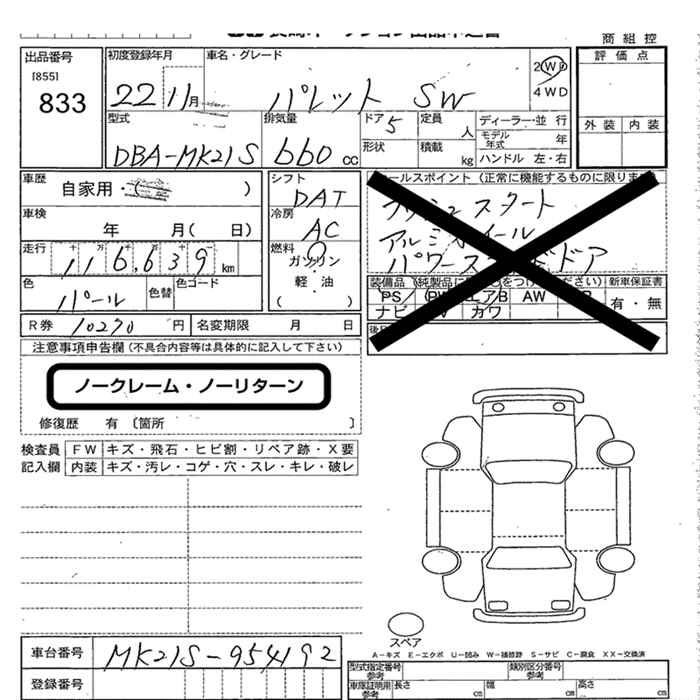 商 組 控
出品番号
[855]
833
初度登録年月
22 11月
車名・グレード
パレット SW
2WD
4WD
評 価 点
外 装 内 装
型式
DBA-MK21S
排気量
660 cc
ドア 5
形状
定員 人
積載 kg
ディーラー・並 行
モデル年式 年
ハンドル 左・右
車歴
自家用・
シフト
DAT
冷房
AC
車検
年 月( 日)
走行
十 万 千
116,639 km
燃料
ガソリン
・
軽 油
( )
色
パール
色替
色コード
セールスポイント (正常に機能するものに限ります)
プッシュスタート
アルミホイール
ドア
新車保証書
有・無
PS
エアB
AW
ナビ
カワ
R券 10270 円
名変期限 月 日
注意事項申告欄 (不具合内容等は具体的に記入して下さい)
ノークレーム・ノーリターン
修復歴 有 〔箇所 〕
検査員
記入欄
FW キズ・飛石・ヒビ割・リペア跡・X要
内装 キズ・汚レ・コゲ・穴・スレ・キレ・破レ
スペア
A－キズ E－エクボ U－凹み W－補修跡 S－サビ C－腐食 XX－交換済
車台番号 MK21S-954192
登録番号
型式指定番号
参考
類別区分番号
参考
車庫証明用
参考
長さ cm
幅 cm
高さ cm